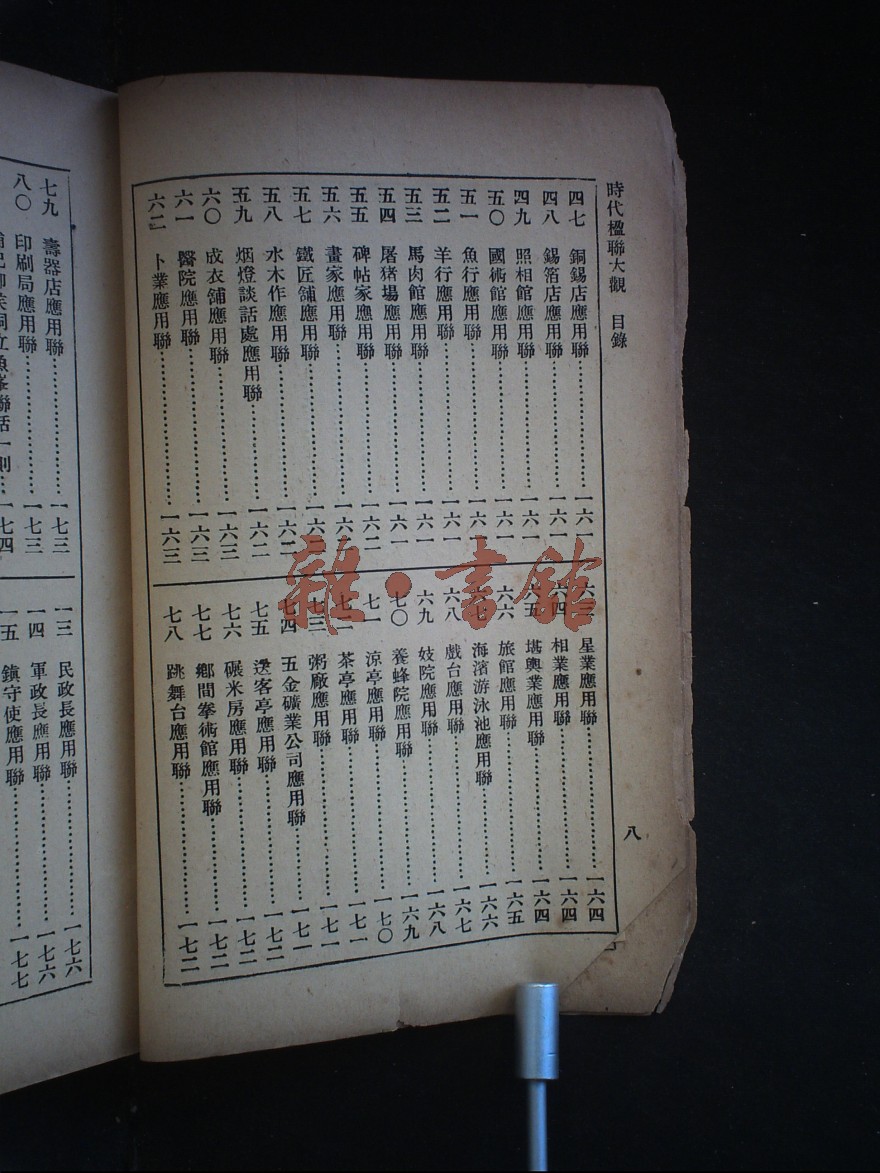 時代楹聯大觀　目錄
八
四七　銅錫店應用聯……一六一
四八　錫箔店應用聯……一六一
四九　照相館應用聯……一六一
五〇　國術館應用聯……一六一
五一　魚行應用聯……一六一
五二　羊行應用聯……一六一
五三　馬肉館應用聯……一六一
五四　屠猪場應用聯……一六一
五五　碑帖家應用聯……一六二
五六　畫家應用聯……一六二
五七　鐵匠舖應用聯……一六二
五八　水木作應用聯……一六二
五九　烟燈談話處應用聯……一六二
六〇　成衣舖應用聯……一六三
六一　醫院應用聯……一六三
六二　卜業應用聯……一六三
六三　星業應用聯……一六四
六四　相業應用聯……一六四
六五　堪輿業應用聯……一六四
六六　旅館應用聯……一六五
六七　海濱游泳池應用聯……一六六
六八　戲台應用聯……一六七
六九　妓院應用聯……一六八
七〇　養蜂院應用聯……一六九
七一　涼亭應用聯……一七〇
七二　茶亭應用聯……一七一
七三　粥廠應用聯……一七一
七四　五金礦業公司應用聯……一七一
七五　送客亭應用聯……一七二
七六　碾米房應用聯……一七二
七七　鄉間拳術館應用聯……一七二
七八　跳舞台應用聯……一七二
七九　壽器店應用聯……一七三
八〇　印刷局應用聯……一七三
聯話一則…一七四
一三　民政長應用聯……一七六
一四　軍政長應用聯……一七六
一五　鎮守使應用聯……一七七
雜·書館